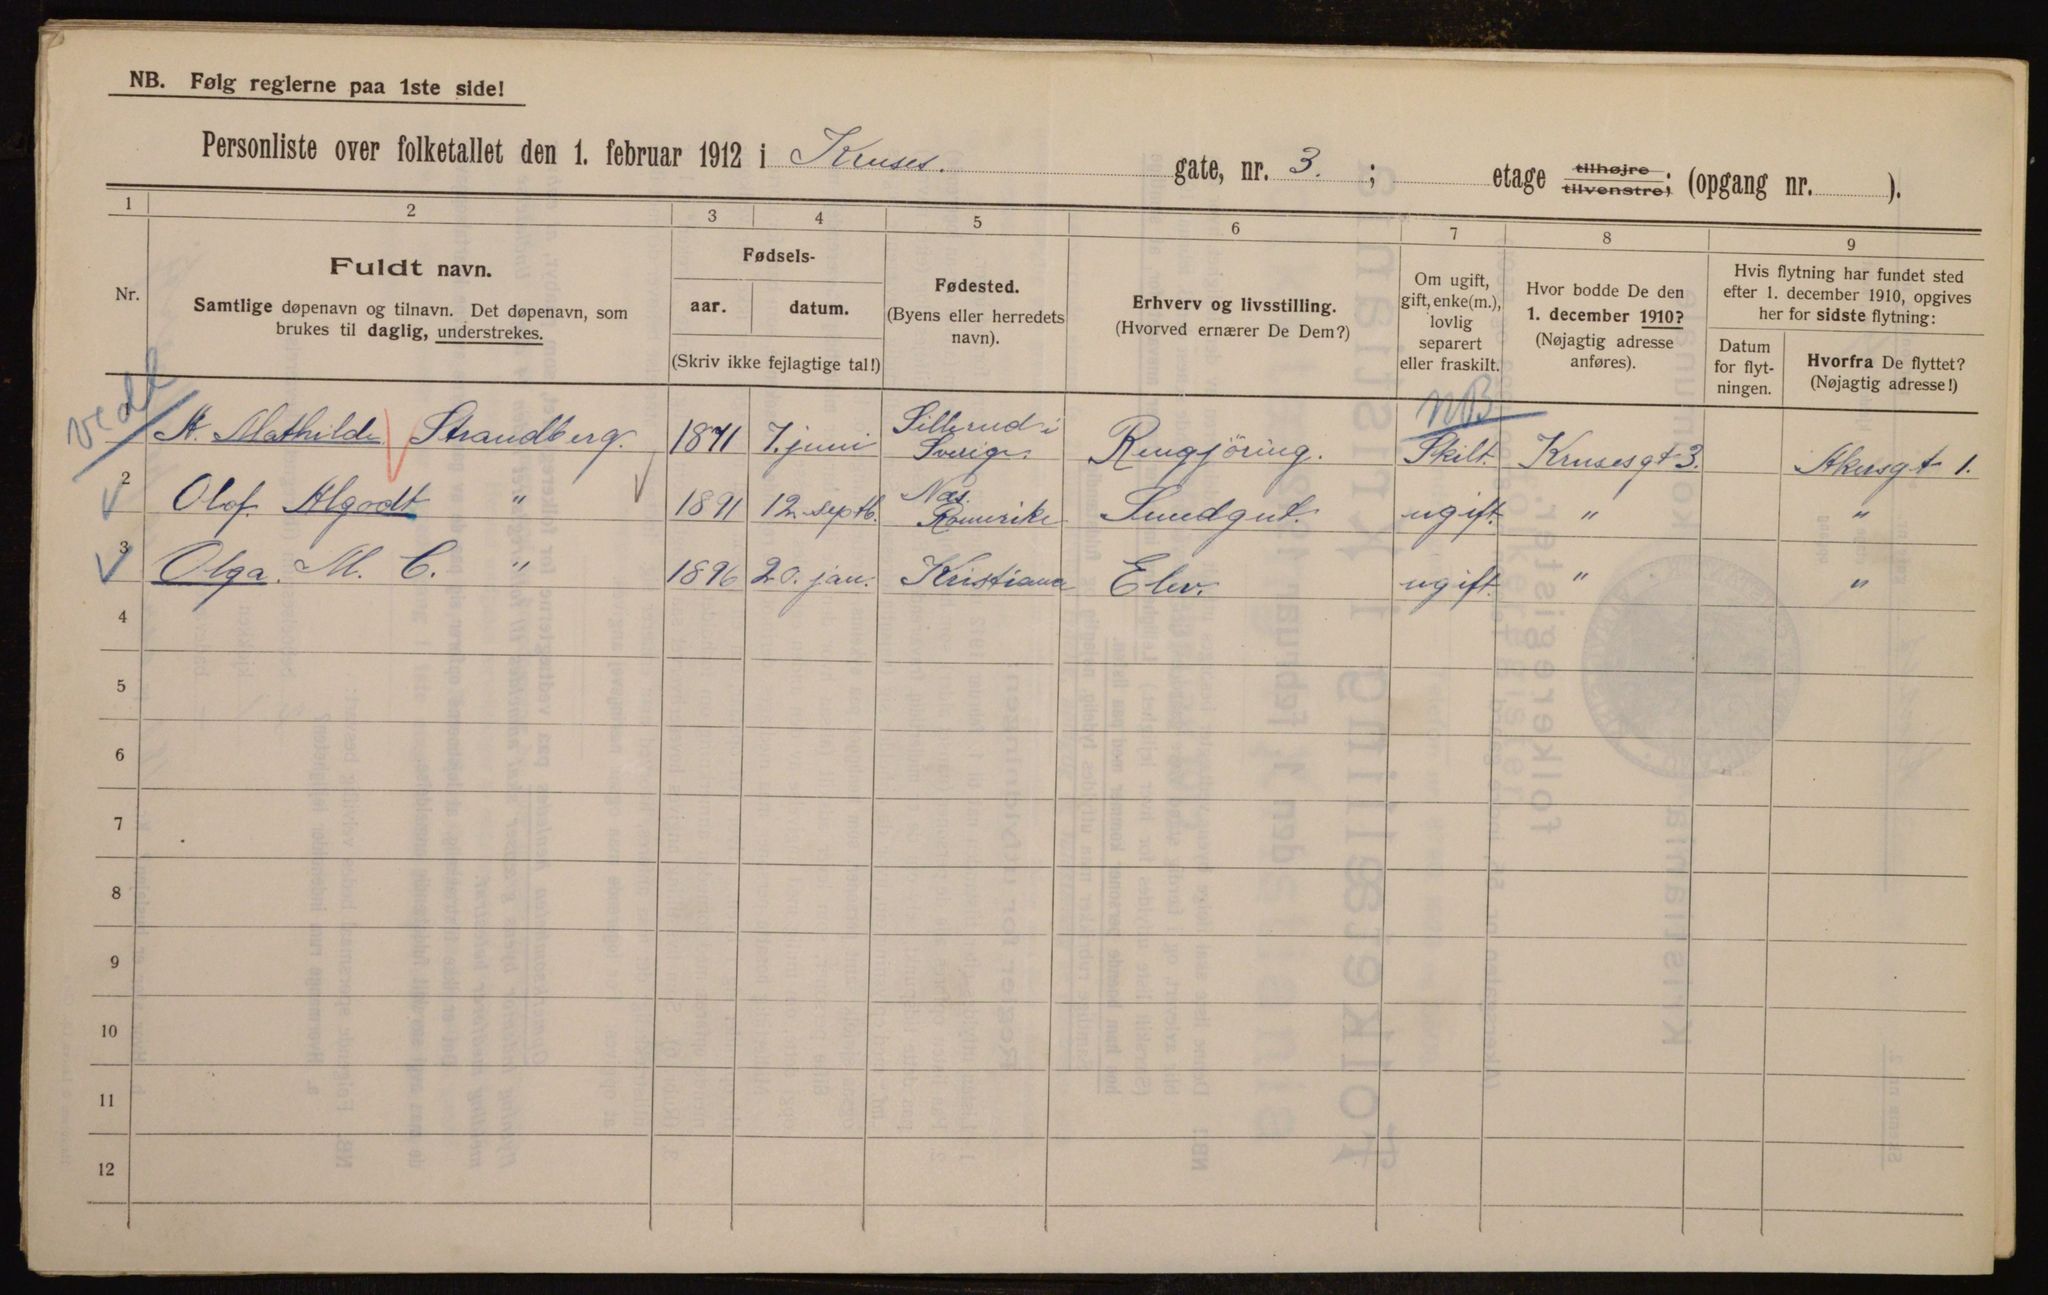 NB. Følg reglerne paa 1ste side!
Personliste over folketallet den 1. februar 1912 i Kruses. gate, nr. 3. ; etage tilhøjre tilvenstre; (opgang nr. ).
1 2 3 4 5 6 7 8 9
Nr.
Fuldt navn.
Samtlige døpenavn og tilnavn. Det døpenavn, som
brukes til daglig, understrekes.
Fødsels-
aar. datum.
(Skriv ikke fejlagtige tal!)
Fødested.
(Byens eller herredets
navn).
Erhverv og livsstilling.
(Hvorved ernærer De Dem?)
Om ugift,
gift, enke(m.),
lovlig
separert
eller fraskilt.
Hvor bodde De den
1. december 1910?
(Nøjagtig adresse
anføres).
Hvis flytning har fundet sted
efter 1. december 1910, opgives
her for sidste flytning:
Datum
for flyt-
ningen.
Hvorfra De flyttet?
(Nøjagtig adresse!)
NB
1 A. Mathilde Strandberg. 1871 7. juni Sillerud i Sverige. Rengjöring. Skilt. Krusesgt 3. Akersgt 1.
2 Olof. Algodt " 1891 12. septb. Næs. Romerike ugift. " "
3 Olga. M. C. " 1896 20. jan. Kristiania Elev. ugift. " "
4
5
6
7
8
9
10
11
12